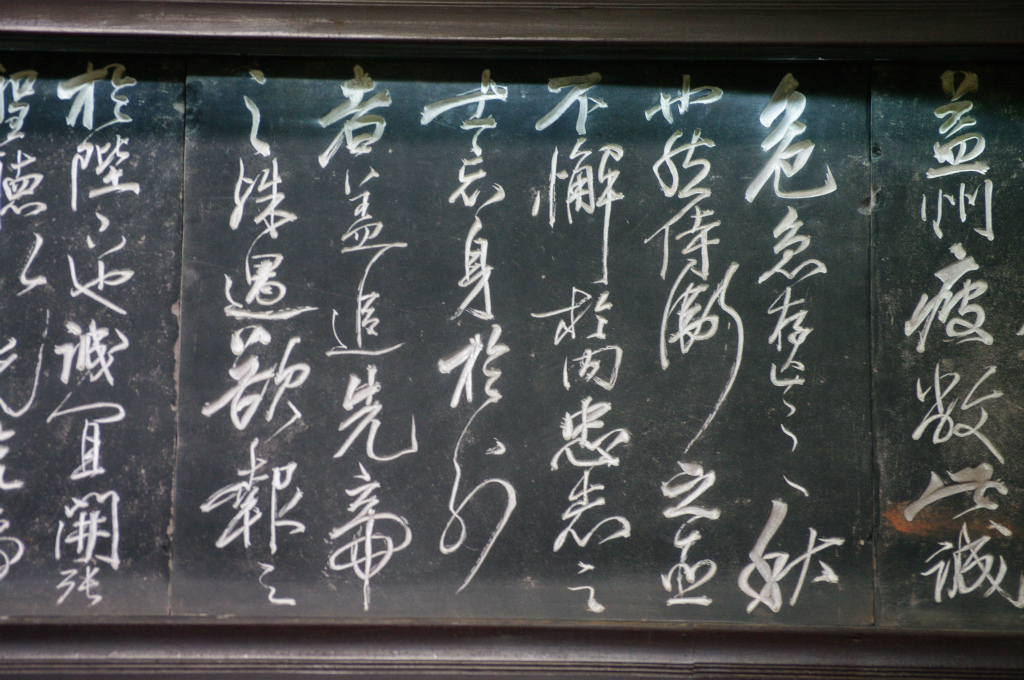 益州疲敝此誠
危急存亡之秋
也然侍衛之臣
不懈於內忠志之
士忘身於外
者蓋追先帝
之殊遇欲報之
於陛下也誠宜開張
聖聽以光先帝